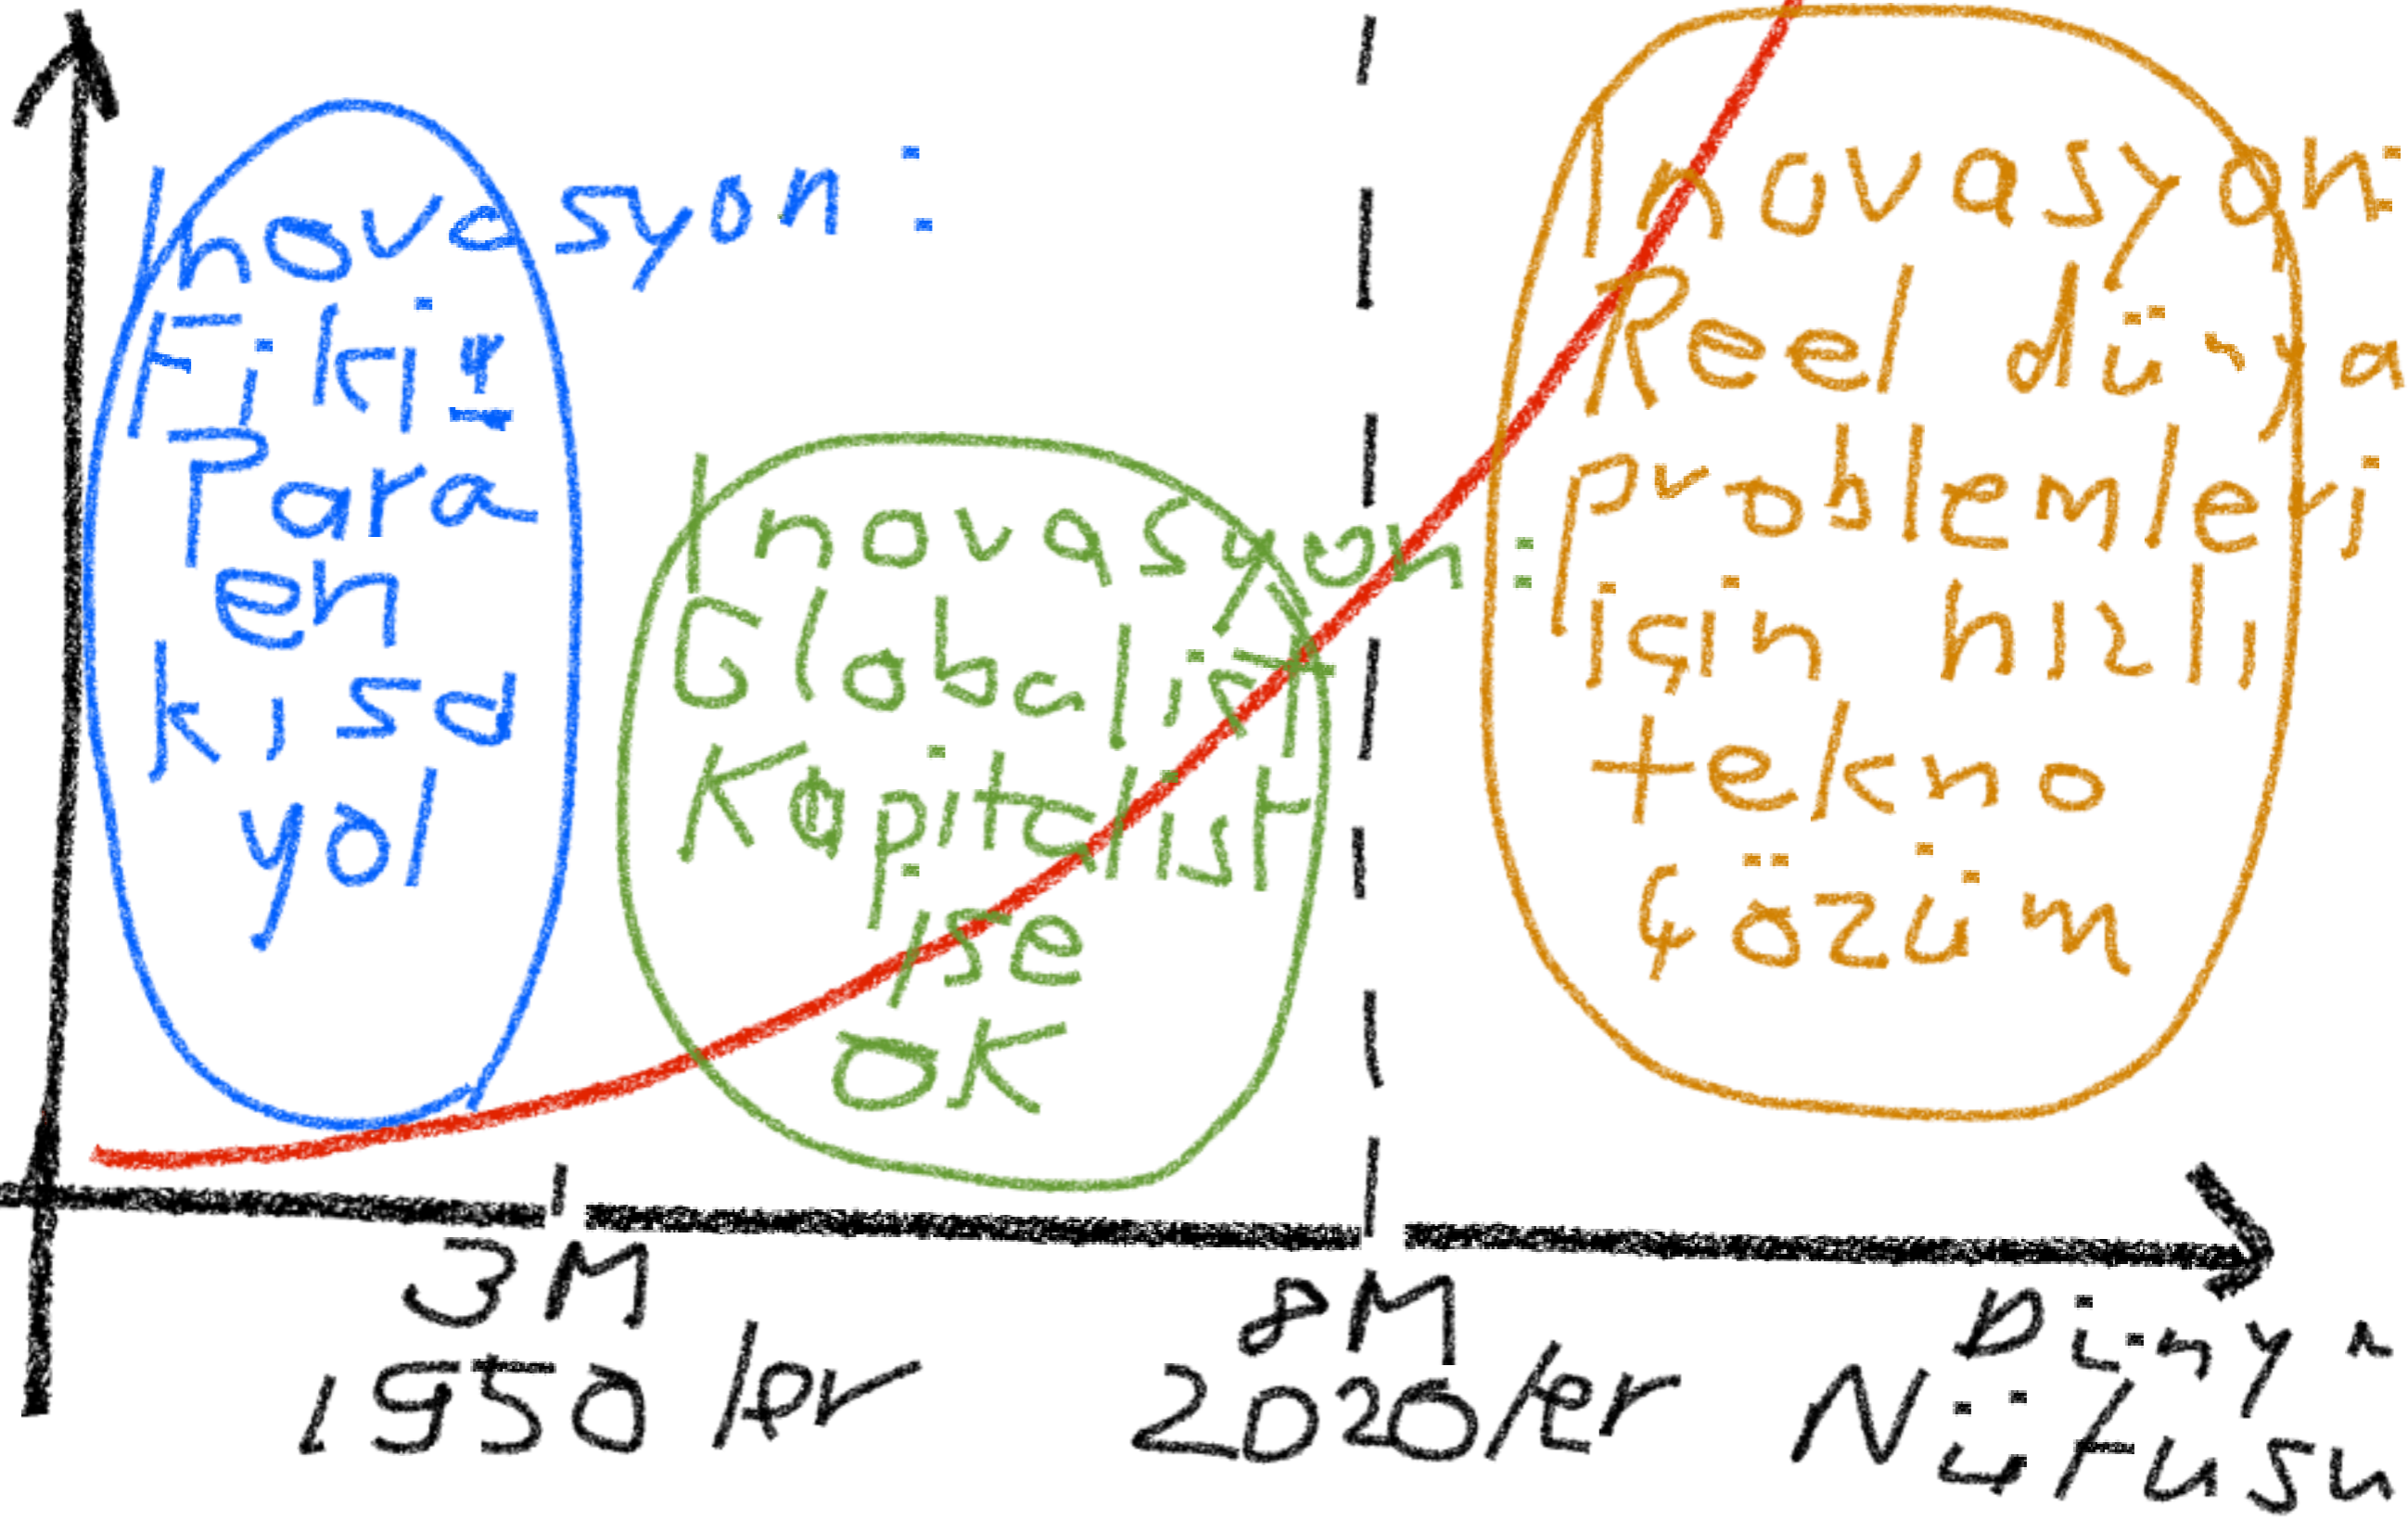 İnovasyon:
Fikir
Para
en
kısa
yol
İnovasyon:
Globalist
Kapitalist
ise
OK
İnovasyon:
Reel dünya
problemleri
için hızlı
tekno
çözüm
3M
1950 ler
8M
2020 ler
Dünya
Nüfusu